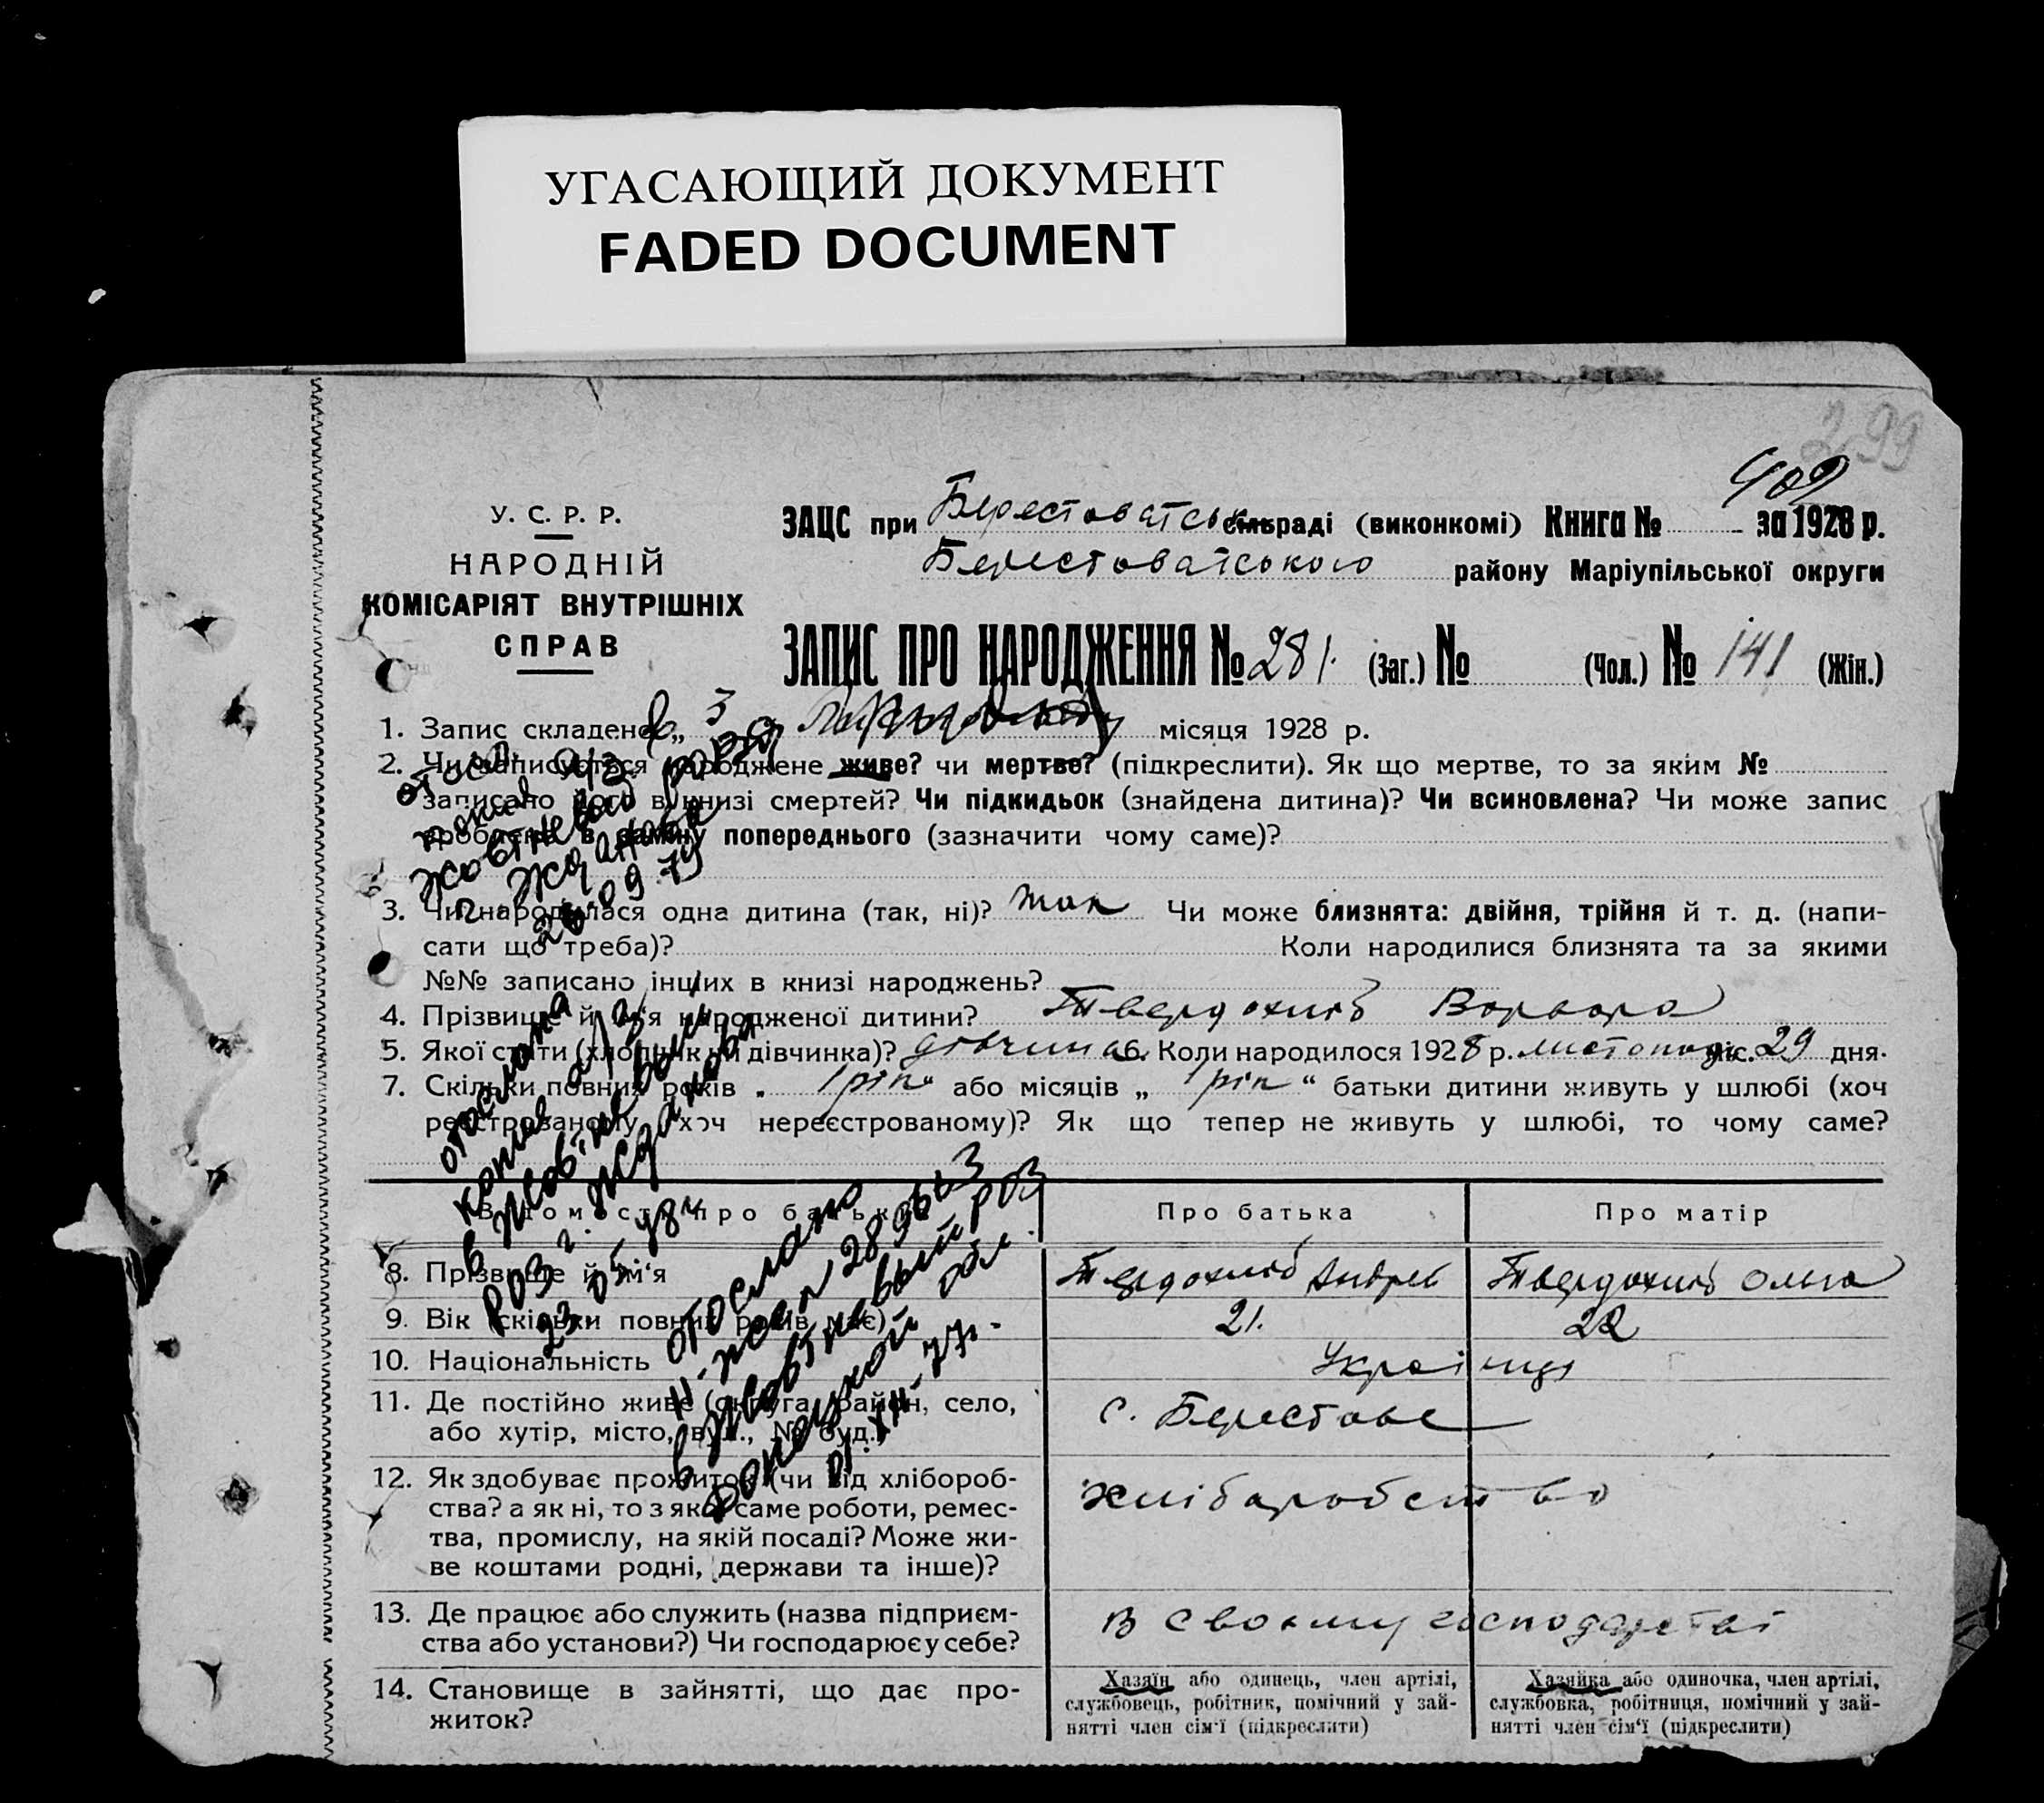 УГАСАЮЩИЙ ДОКУМЕНТ
FADED DOCUMENT
299
402
У. С. Р. Р.
НАРОДНІЙ
КОМІСАРІЯТ ВНУТРІШНІХ
СПРАВ
ЗАЦС при Берестоватськ сільраді (виконкомі) Книга № за 1928 р.
Берестоватського району Маріупільської округи
ЗАПИС ПРО НАРОДЖЕННЯ № 281. (Заг.) № (Чол.) № 141 (Жін.)
1. Запис складено „ 3 місяця 1928 р.
2. Чи записується народжене живе? чи мертве? (підкреслити). Як що мертве, то за яким №
записано його в книзі смертей? Чи підкидьок (знайдена дитина)? Чи всиновлена? Чи може запис
зроблено в заміну попереднього (зазначити чому саме)?
3. Чи народилася одна дитина (так, ні)? так Чи може близнята: двійня, трійня й т. д. (напи-
сати що треба)? Коли народилися близнята та за якими
№№ записано інших в книзі народжень?
4. Прізвище й ім'я народженої дитини? Твердохліб Варвара
5. Якої стати (хлопчик чи дівчинка)? дівчина 6. Коли народилося 1928 р. листопада міс. 29 дня.
7. Скільки повних років „ 1 рік “ або місяців „ 1 рік “ батьки дитини живуть у шлюбі (хоч
реєстрованому, хоч нереєстрованому)? Як що тепер не живуть у шлюбі, то чому саме?
Відомості про батьків
Про батька
Про матір
8. Прізвище й ім'я
Твердохліб Андрей
Твердохліб Ольга
9. Вік (скільки повних років має)
21.
22
10. Національність
Українці
11. Де постійно живе (округа, район, село,
або хутір, місто, вул., № буд.)
с. Берестове
12. Як здобуває прожиток (чи від хлібороб-
ства? а як ні, то з якої саме роботи, ремес-
тва, промислу, на якій посаді? Може жи-
ве коштами родні, держави та інше)?
хліборобство
13. Де працює або служить (назва підприєм-
ства або установи?) Чи господарює у себе?
в своєму господарстві
14. Становище в зайнятті, що дає про-
житок?
Хазяїн або одинець, член артілі,
службовець, робітник, помічний у зай-
нятті член сім'ї (підкреслити)
Хазяйка або одиночка, член артілі,
службовка, робітниця, помічний у зай-
нятті член сім'ї (підкреслити)
копия а/з
Жовтневый
г. Жданова
26.09.79
отослана
копия а/з
в Жовтневый
РОЗ г. Жданова
23.05.84
отослано
в Жовтневый РОЗ
Донецкой обл.